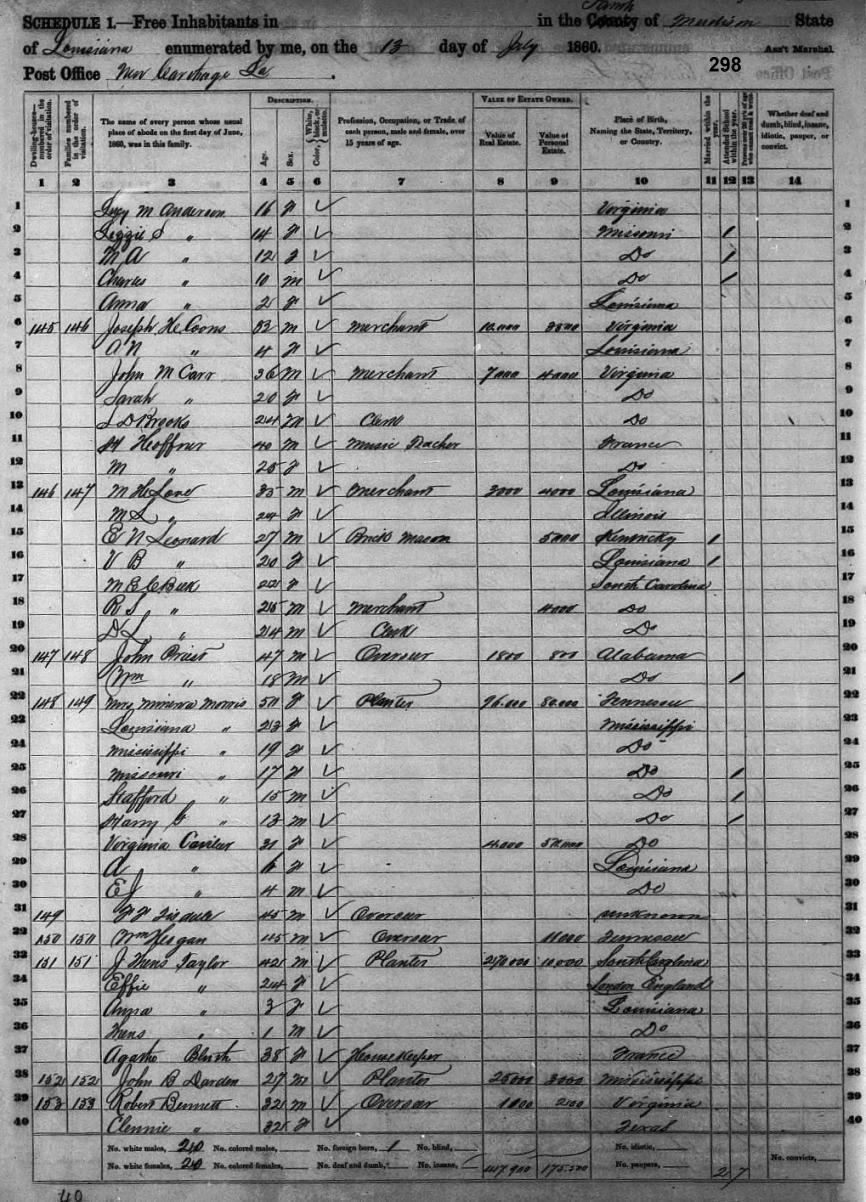 SCHEDULE 1.—Free Inhabitants in in the County Parish of Madison State
of Louisiana enumerated by me, on the 13 day of July 1860. Ass't Marshal.
Post Office New Carthage La. 298
DESCRIPTION. VALUE OF ESTATE OWNED.
Dwelling-houses—numbered in the order of visitation. Families numbered in the order of visitation. The name of every person whose usual place of abode on the first day of June, 1860, was in this family. Age. Sex. Color, {White, black, or mulatto. Profession, Occupation, or Trade, of each person, male and female, over 15 years of age. Value of Real Estate. Value of Personal Estate. Place of Birth, Naming the State, Territory, or Country. Married within the year. Attended School within the year. Persons over 20 years of age who cannot read & write. Whether deaf and dumb, blind, insane, idiotic, pauper, or convict.
1 2 3 4 5 6 7 8 9 10 11 12 13 14
1 Lucy M Anderson 16 f ✓ Virginia 1
2 Lizzie S " 14 f ✓ Missouri / 2
3 M A " 12 f ✓ Do / 3
4 Charles " 10 m ✓ Do / 4
5 Anna " 2 f ✓ Louisiana 5
6 145 146 Joseph H Coons 33 m ✓ Merchant 10.000 Virginia 6
7 A N " 4 f ✓ Louisiana 7
8 John M Carr 36 M ✓ Merchant 7000 4000 Virginia 8
9 Sarah " 20 f ✓ Do 9
10 Brooks 24 M ✓ Clerk Do 10
11 H Heoffner 40 M ✓ Music Teacher France 11
12 M " 25 f ✓ Do 12
13 146 147 M H Love 35 m ✓ Merchant 3000 4000 Louisiana 13
14 M L " 24 f ✓ Illinois 14
15 E N Leonard 27 M ✓ Brick Mason 5000 Kentucky / 15
16 V B " 20 f ✓ Louisiana / 16
17 M E C 22 f ✓ South Carolina 17
18 R S " 25 m ✓ Merchant 4000 Do 18
19 D L " 24 m ✓ Clerk Do 19
20 147 148 John Priest 47 m ✓ Overseer 1800 800 Alabama 20
21 Wm " 18 M ✓ Do / 21
22 148 149 Mrs Minerva Morris 50 f ✓ Planter 96.000 50.000 Tennessee 22
23 Louisiana " 23 f ✓ Mississippi 23
24 Mississippi " 19 f ✓ Do 24
25 Missouri " 17 f ✓ Do / 25
26 Stafford " 15 m ✓ Do / 26
27 Harry G " 13 m ✓ Do / 27
28 Virginia 21 f ✓ 4.000 50.000 Do 28
29 A " 6 f ✓ Louisiana 29
30 E J " 4 m ✓ Do 30
31 149 Tisdale 45 m ✓ Overseer unknown 31
32 150 150 Wm Hogan 45 m ✓ Overseer Tennessee 32
33 151 151 J Taylor 42 M ✓ Planter 10.000 South Carolina 33
34 Effie " 24 f ✓ London England 34
35 Anna " 3 f ✓ Louisiana 35
36 " 1 m ✓ Do 36
37 Agatha 38 f ✓ Housekeeper France 37
38 152 152 John B Darden 27 m ✓ Planter 25000 3000 Mississippi 38
39 153 153 Robert Bennett 32 m ✓ Overseer 1000 200 Virginia 39
40 Clennie " 32 f ✓ Texas 40
No. white males, 20 No. colored males, No. foreign born, 1 No. blind, No. idiotic,
No. white females, 20 No. colored females, No. deaf and dumb, No. insane, 175.500 No. paupers, 2 7 No. convicts,
40